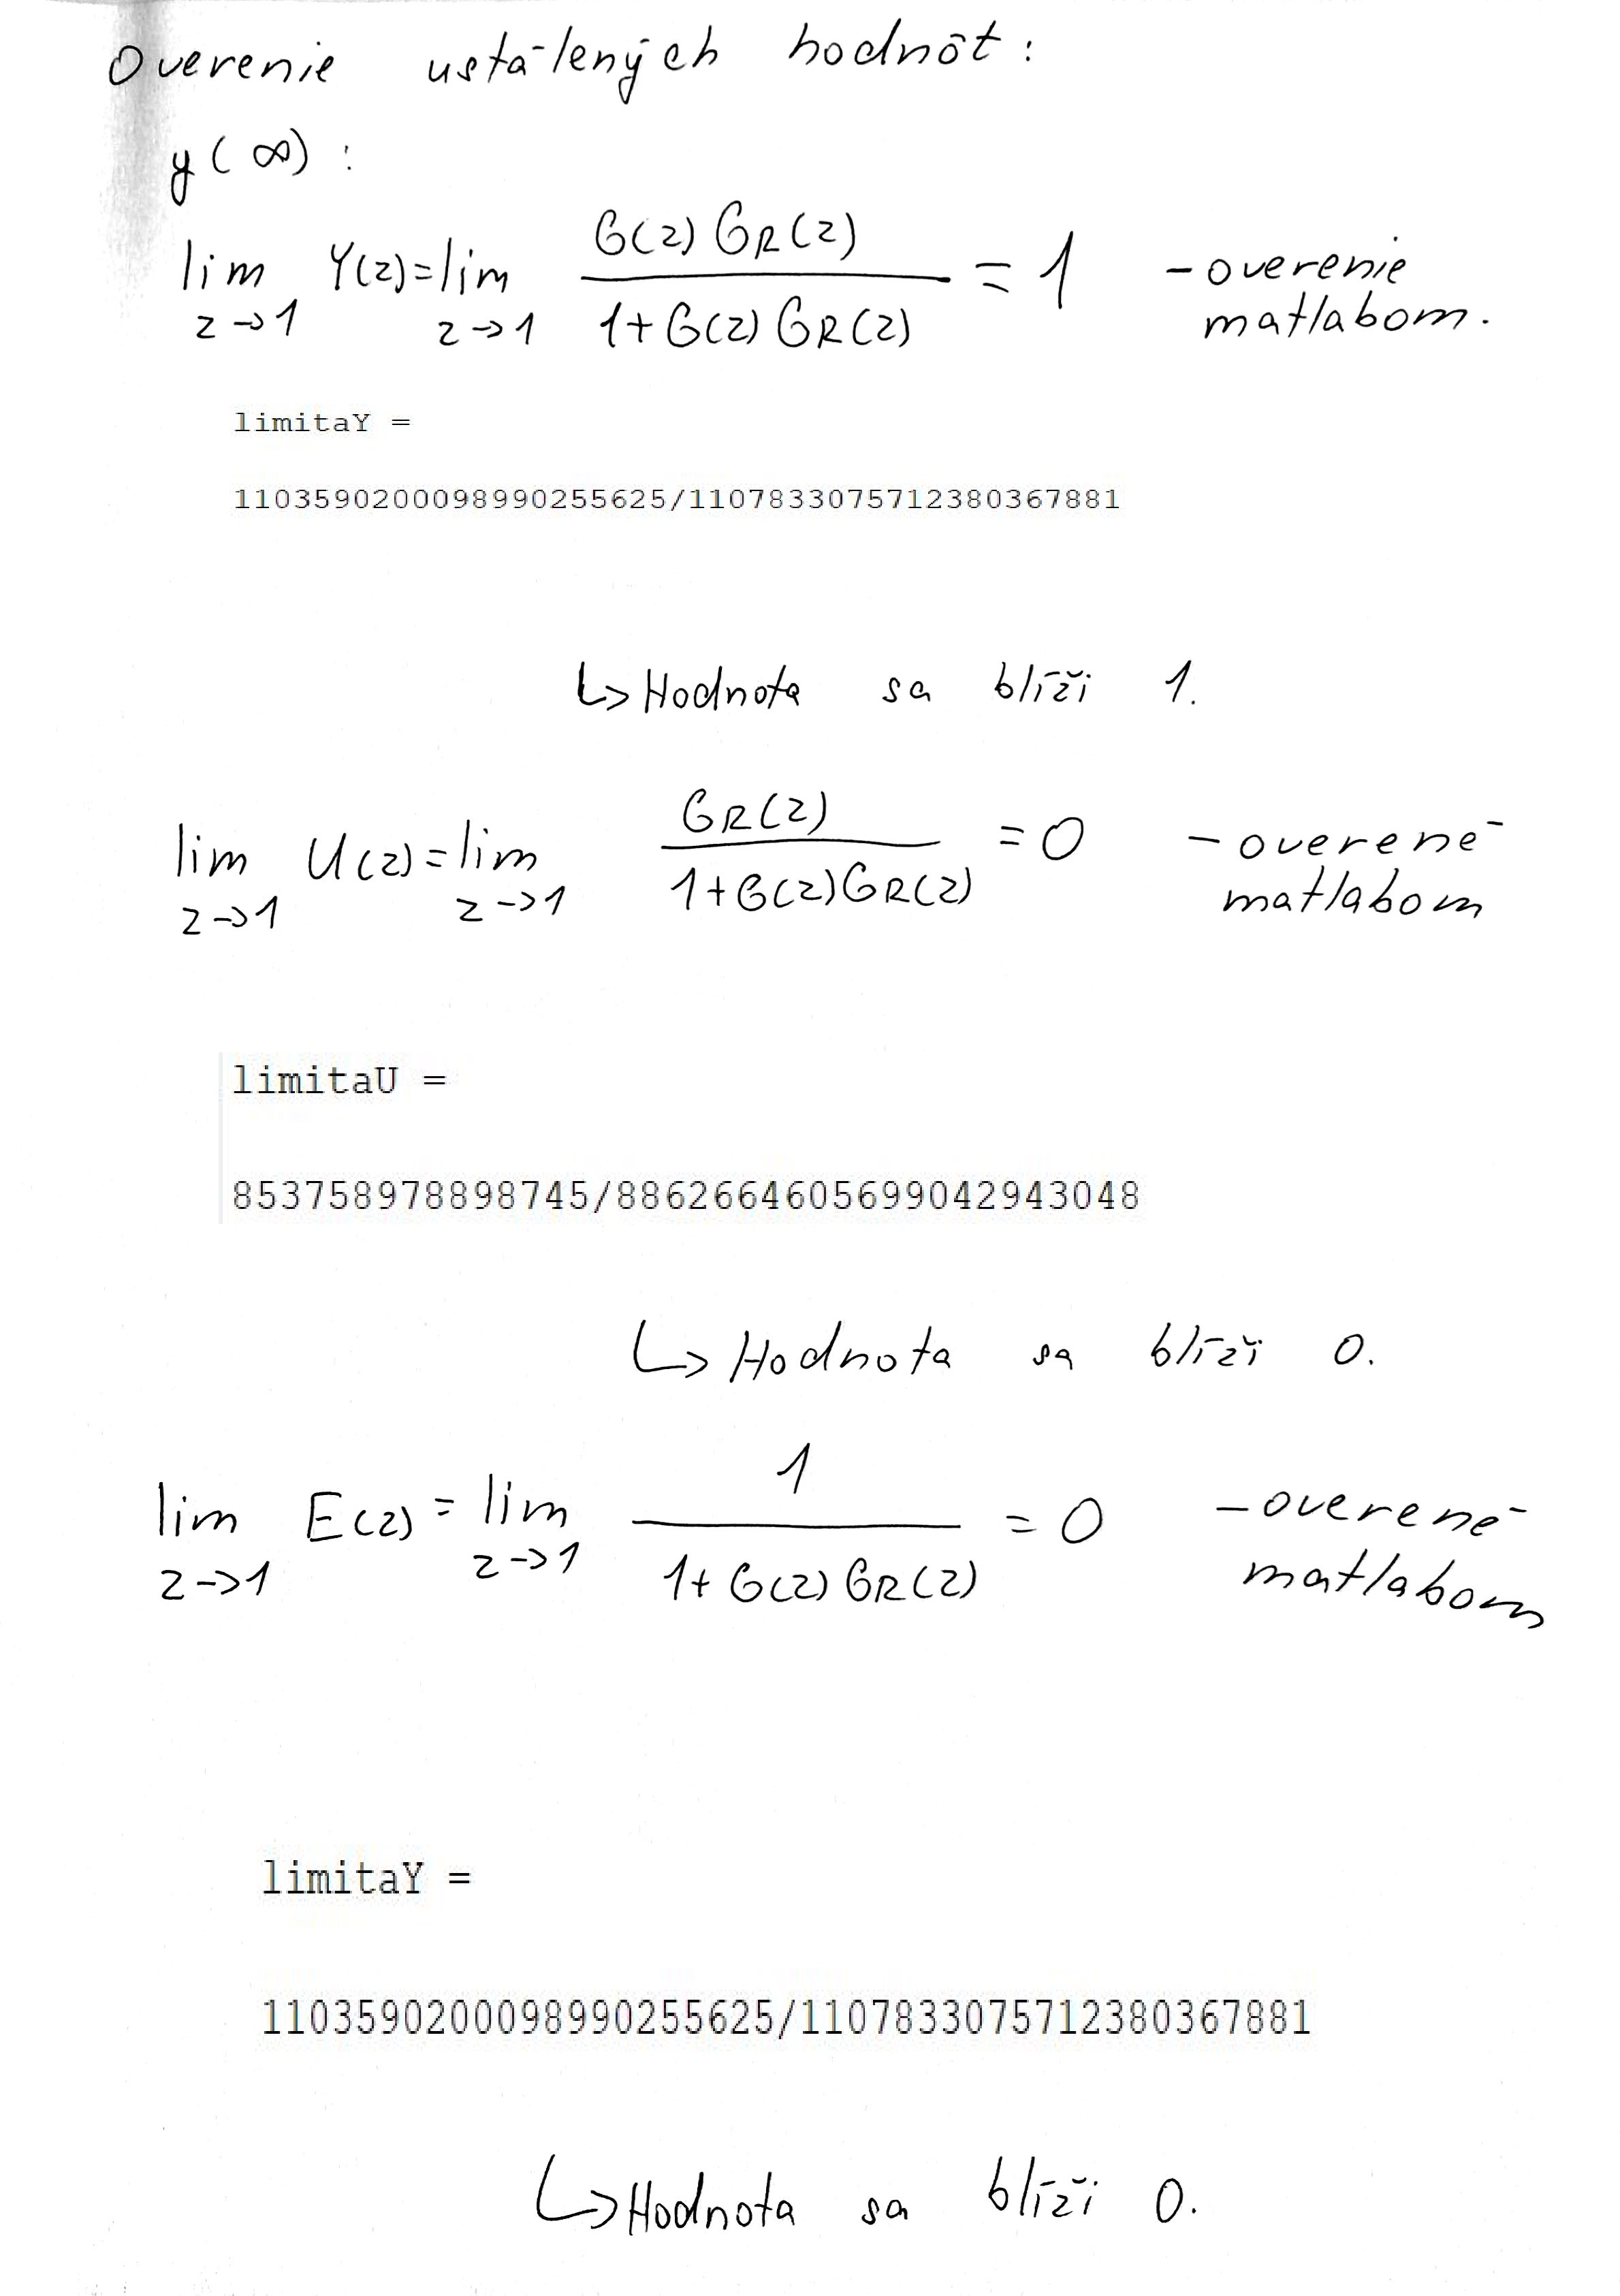 Overenie ustálených hodnôt:
y(∞):
lim z→1 Y(z) = lim z→1 G(z) GR(z) / 1+G(z) GR(z) = 1 - overenie matlabom.
limitaY =
1103590200098990255625/1107833075712380367881
↳ Hodnota sa blíži 1.
lim z→1 U(z) = lim z→1 GR(z) / 1+G(z)GR(z) = 0 - overené matlabom
limitaU =
853758978898745/8862664605699042943048
↳ Hodnota sa blíži 0.
lim z→1 E(z) = lim z→1 1 / 1+G(z) GR(z) = 0 - overené matlabom
limitaY =
1103590200098990255625/1107833075712380367881
↳ Hodnota sa blíži 0.